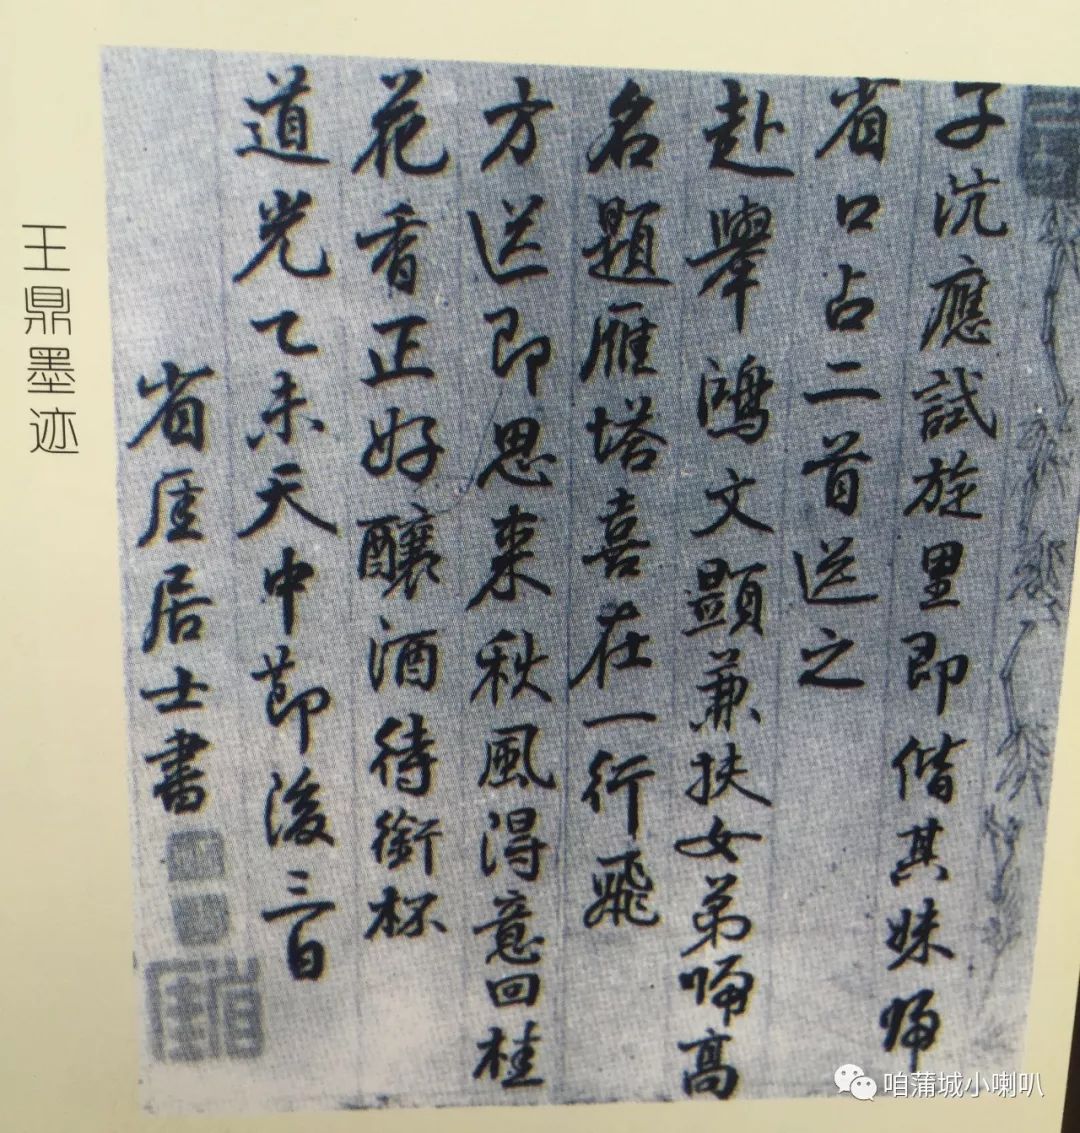 子沆應試旋里即偕其妹歸
省口占二首送之
赴舉鴻文顯兼扶女弟歸高
名題雁塔喜在一行飛
方送即思来秋風得意回桂
花香正好釀酒待銜杯
道光乙未天中節後三日
省厓居士書
王鼎墨迹
咱蒲城小喇叭